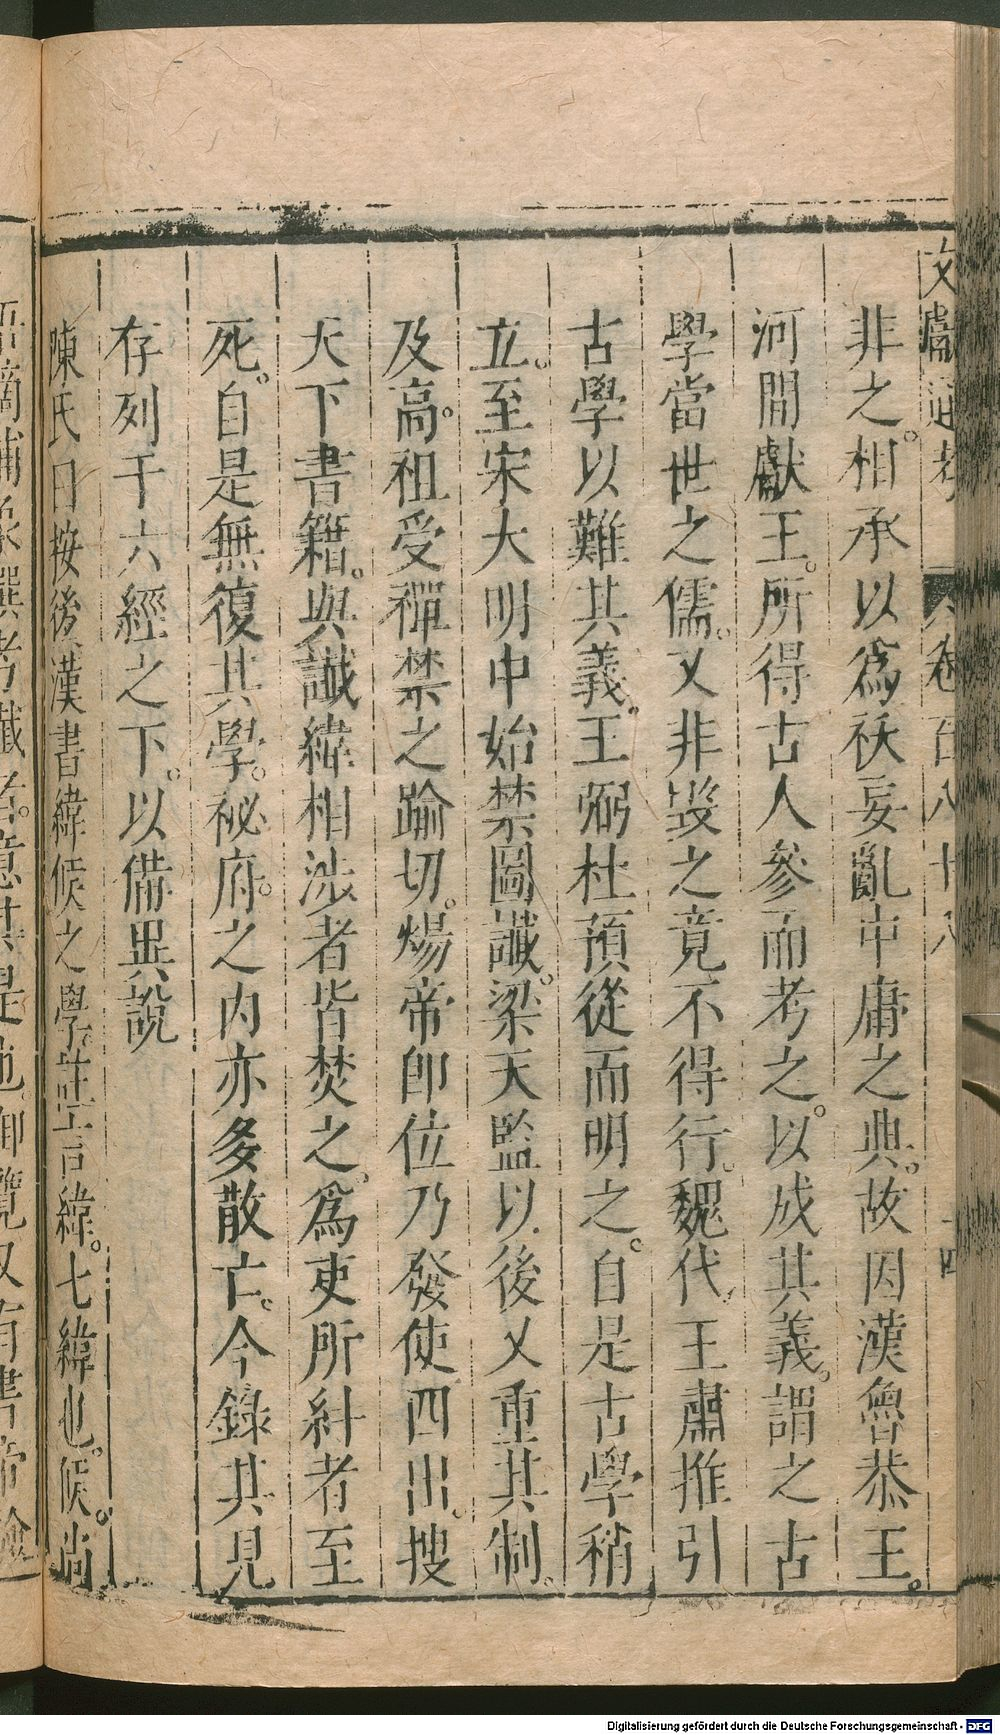 文獻通考 卷百八十八 十四
非之。相承以爲祅妄亂中庸之典。故因漢魯恭王。
河間獻王。所得古人參而考之。以成其義。謂之古
學當世之儒。又非毀之竟不得行。魏代王肅推引
古學以難其義。王弼杜預從而明之。自是古學稍
立。至宋大明中始禁圖讖。梁天監以後又重其制。
及高。祖受禪禁之踰切。煬帝卽位乃發使四出。搜
天下書籍。與讖緯相涉者皆焚之。爲吏所糾者至
死。自是無復其學。祕府。之內亦多散亡。今錄其見
存列于六經之下。以備異說
陳氏曰按後漢書緯候之學註言緯。七緯也。候。尚
Digitalisierung gefördert durch die Deutsche Forschungsgemeinschaft - DFG